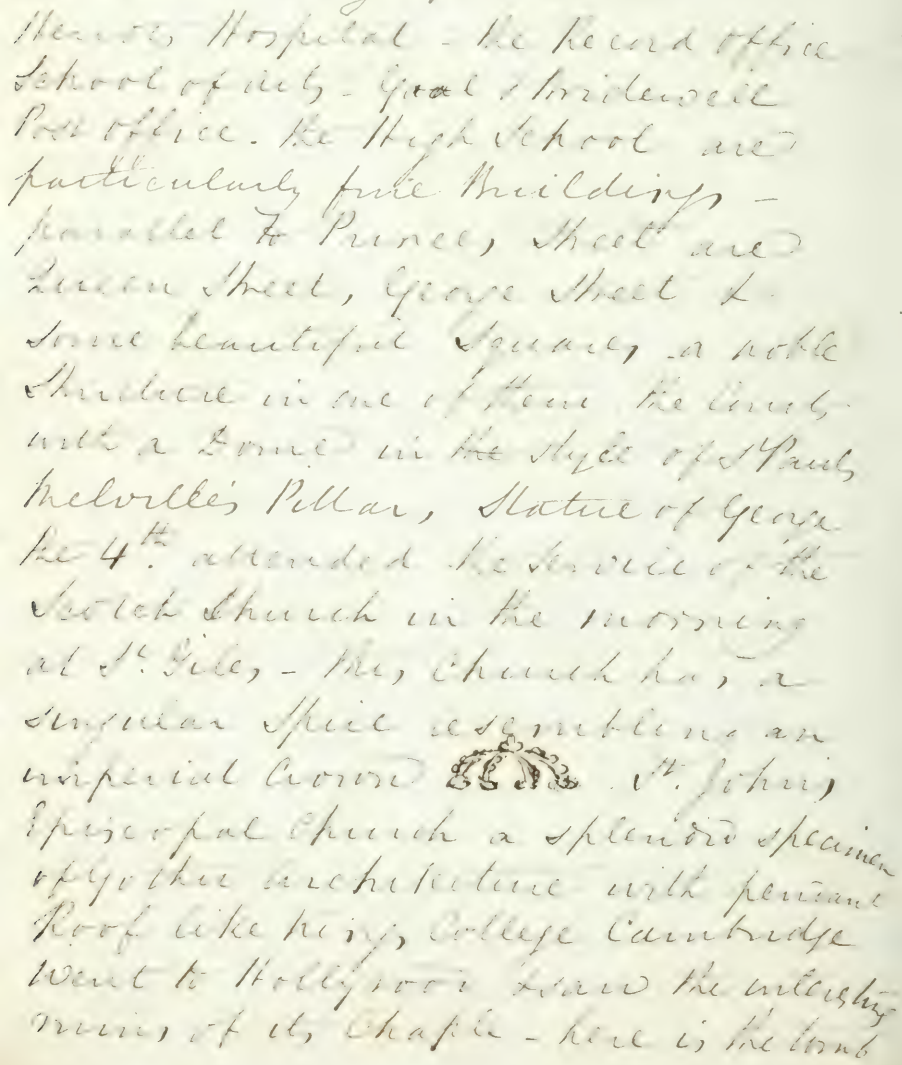 Heriots Hospital - the Record office
School of Arts - Goal & Bridewell
Post office. the High School are
particularly fine Buildings -
parallel to Princes Street are
Queen Street, George Street &
some beautiful Squares, a noble
Structure in one of them the
with a Dome in the style of St Pauls
Melville's Pillar, Statue of George
the 4th. attended the service of the
Scotch Church in the morning
at St. Giles - this Church has a
singular Spire resembling an
imperial Crown St. Johns
Episcopal Church a splendid specimen
of Gothic architecture with pendant
Roof like Kings College Cambridge
Went to Hollyrood & saw the interesting
ruins of its Chaple - here is the tomb